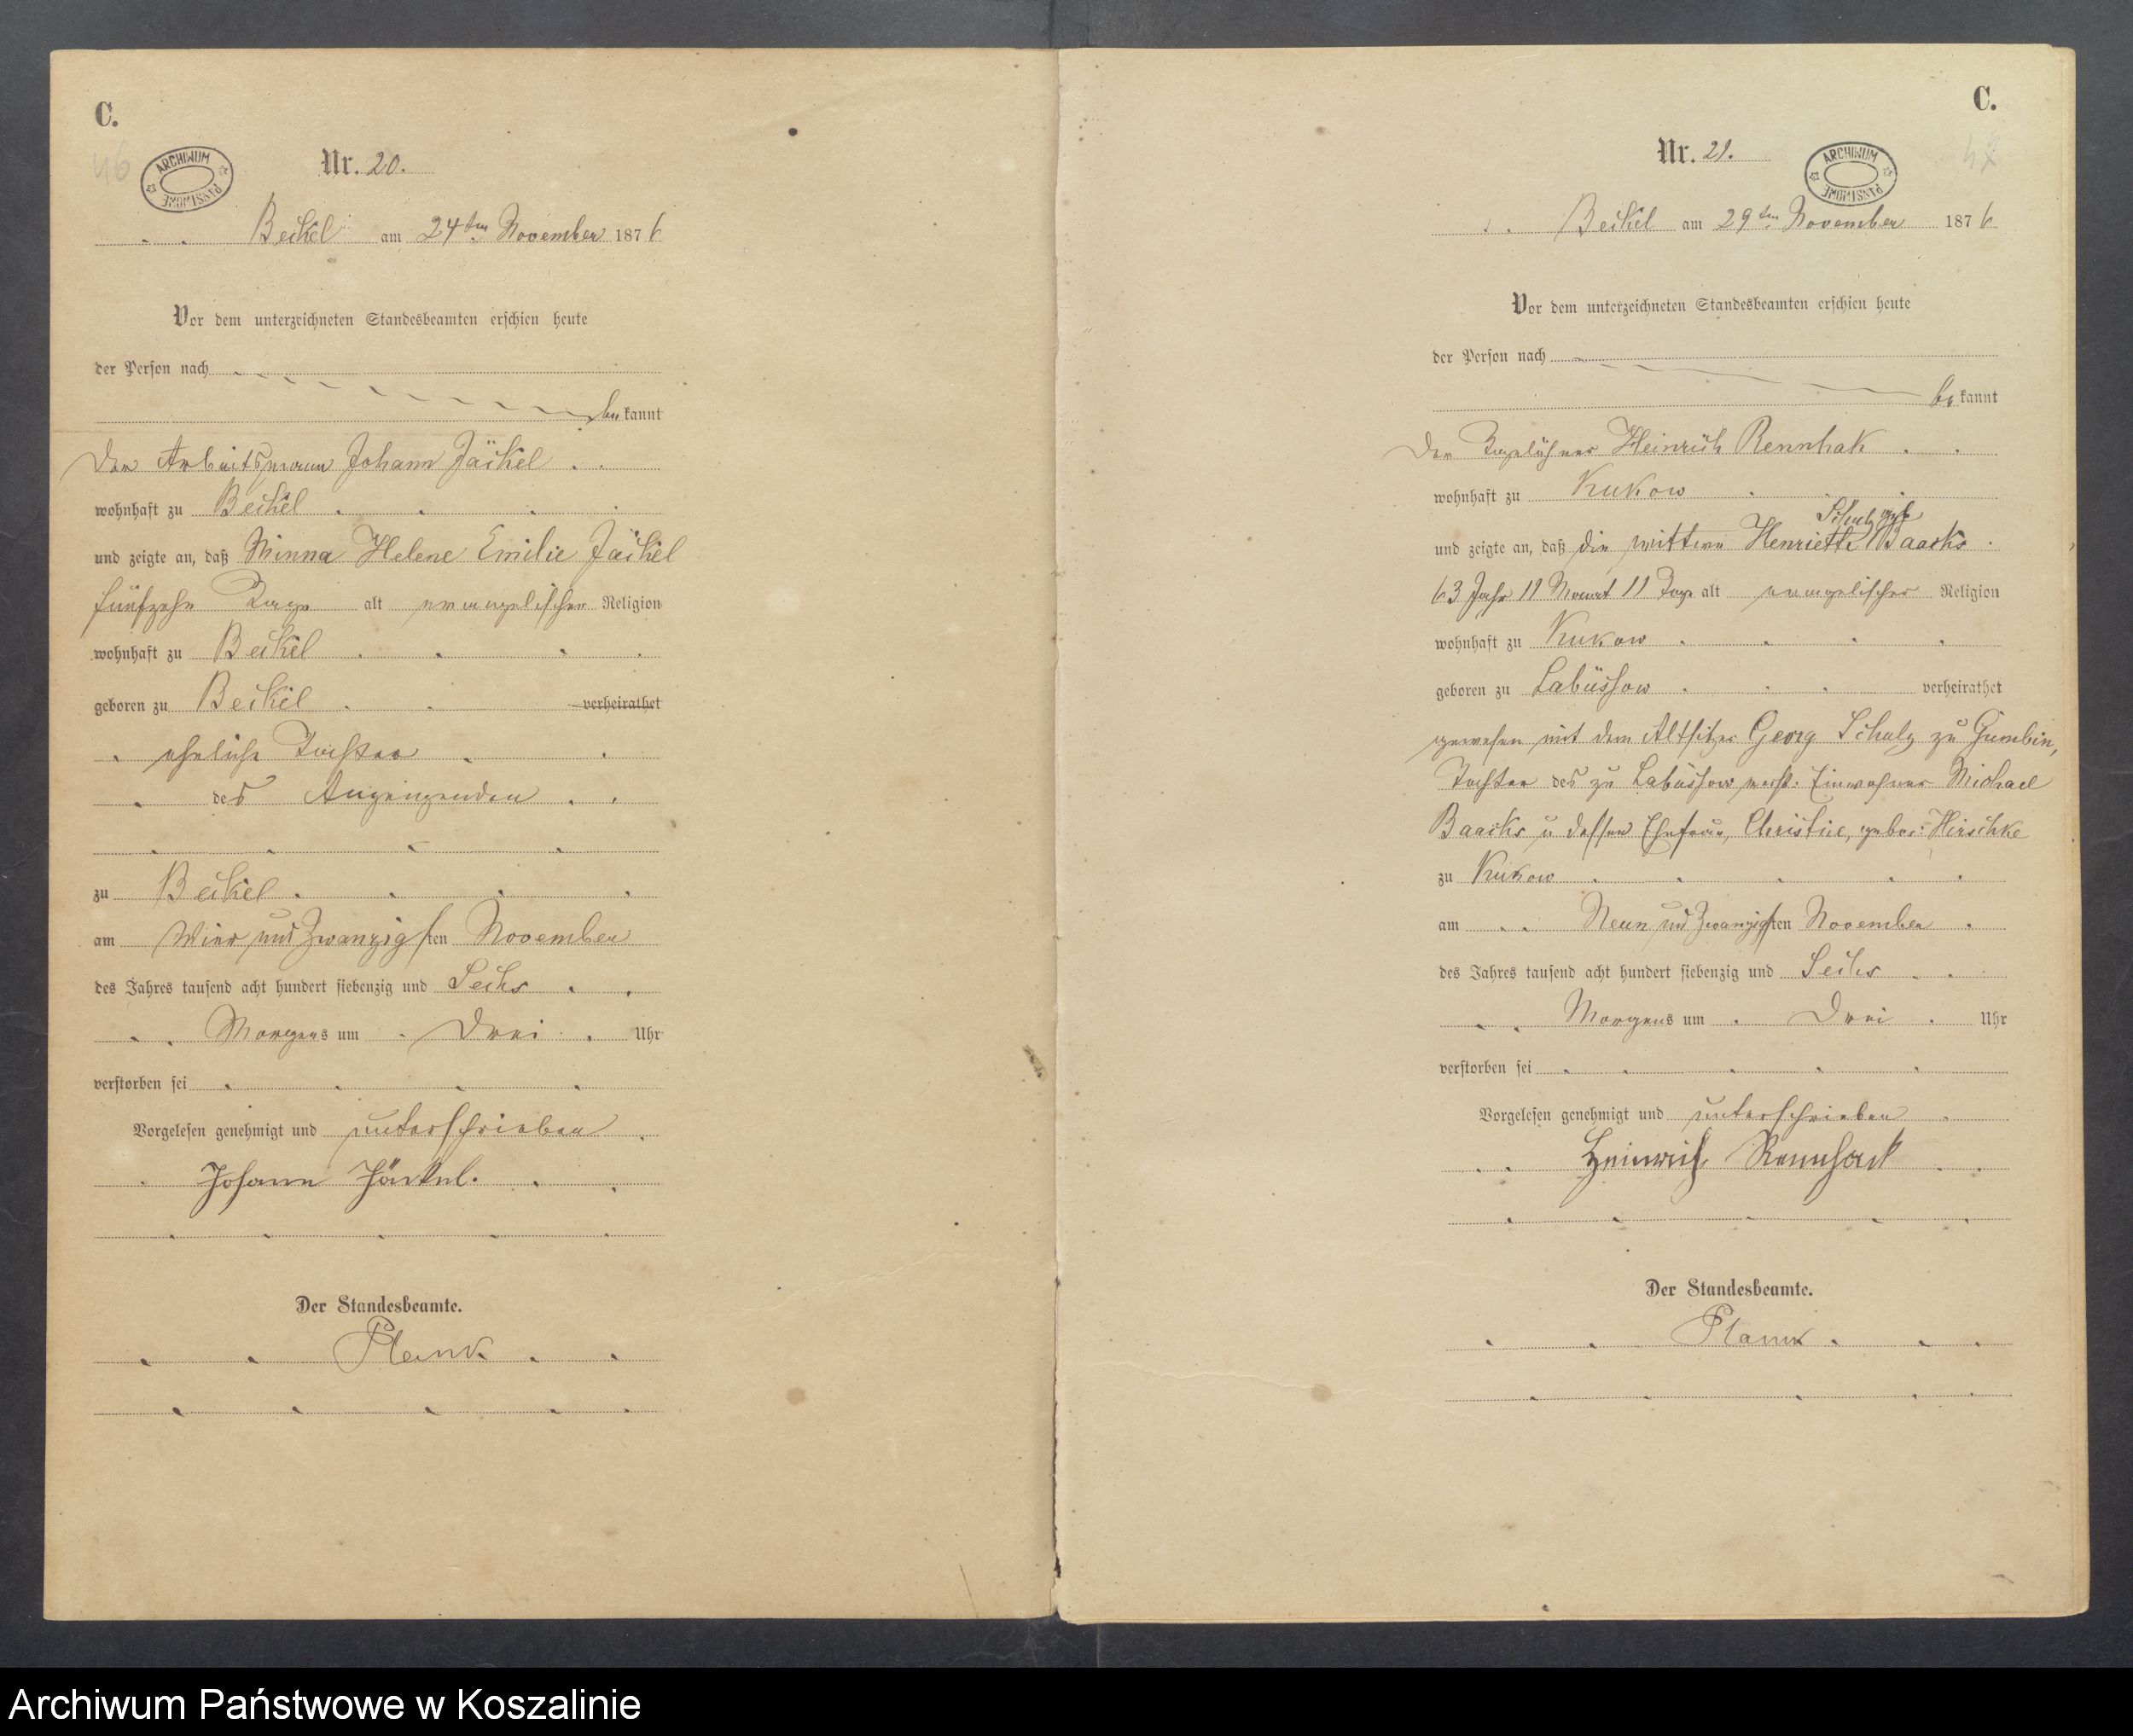 C.
46
ARCHIWUM PAŃSTWOWE
Nr. 20.
Beckel am 24ten November 1876
Vor dem unterzeichneten Standesbeamten erschien heute
der Person nach
bekannt
Der Arbeitsmann Johann Jäckel
wohnhaft zu Beckel
und zeigte an, daß Minna Helene Emilie Jäckel
fünfzehn Tage alt evangelischer Religion
wohnhaft zu Beckel
geboren zu Beckel verheirathet
eheliche Tochter
des Anzeigenden
zu Beckel
am Vier und Zwanzigsten November
des Jahres tausend acht hundert siebenzig und Sechs
Morgens um Drei Uhr
verstorben sei
Vorgelesen genehmigt und unterschrieben
Johann Jäckel.
Der Standesbeamte.
Plank
C.
47
ARCHIWUM PAŃSTWOWE
Nr. 21.
Beckel am 29ten November 1876
Vor dem unterzeichneten Standesbeamten erschien heute
der Person nach
bekannt
Der Tagelöhner Heinrich Rennhak
wohnhaft zu Kukow
Schulz geb
und zeigte an, daß die Wittwe Henriette Baacks
63 Jahr 11 Monat 11 Tage alt evangelischer Religion
wohnhaft zu Kukow
geboren zu Labüssow verheirathet
gewesen mit dem Altsitzer Georg Schulz zu Gumbin,
Tochter des zu Labüssow verst. Einwohner Michael
Baacks u dessen Ehefrau, Christine, gebor: Hirschke
zu Kukow
am Neun und Zwanzigsten November
des Jahres tausend acht hundert siebenzig und Sechs
Morgens um Drei Uhr
verstorben sei
Vorgelesen genehmigt und unterschrieben
Heinrich Rennhack
Der Standesbeamte.
Plank
Archiwum Państwowe w Koszalinie